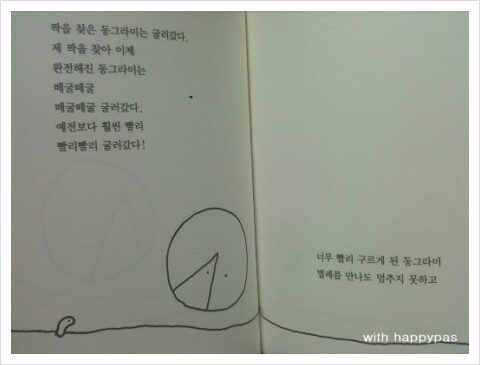 짝을 찾은 동그라미는 굴러갔다.
제 짝을 찾아 이제
완전해진 동그라미는
떼굴떼굴
떼굴떼굴 굴러갔다.
예전보다 훨씬 빨리
빨리빨리 굴러갔다!
너무 빨리 구르게 된 동그라미
벌레를 만나도 멈추지 못하고
with happypas